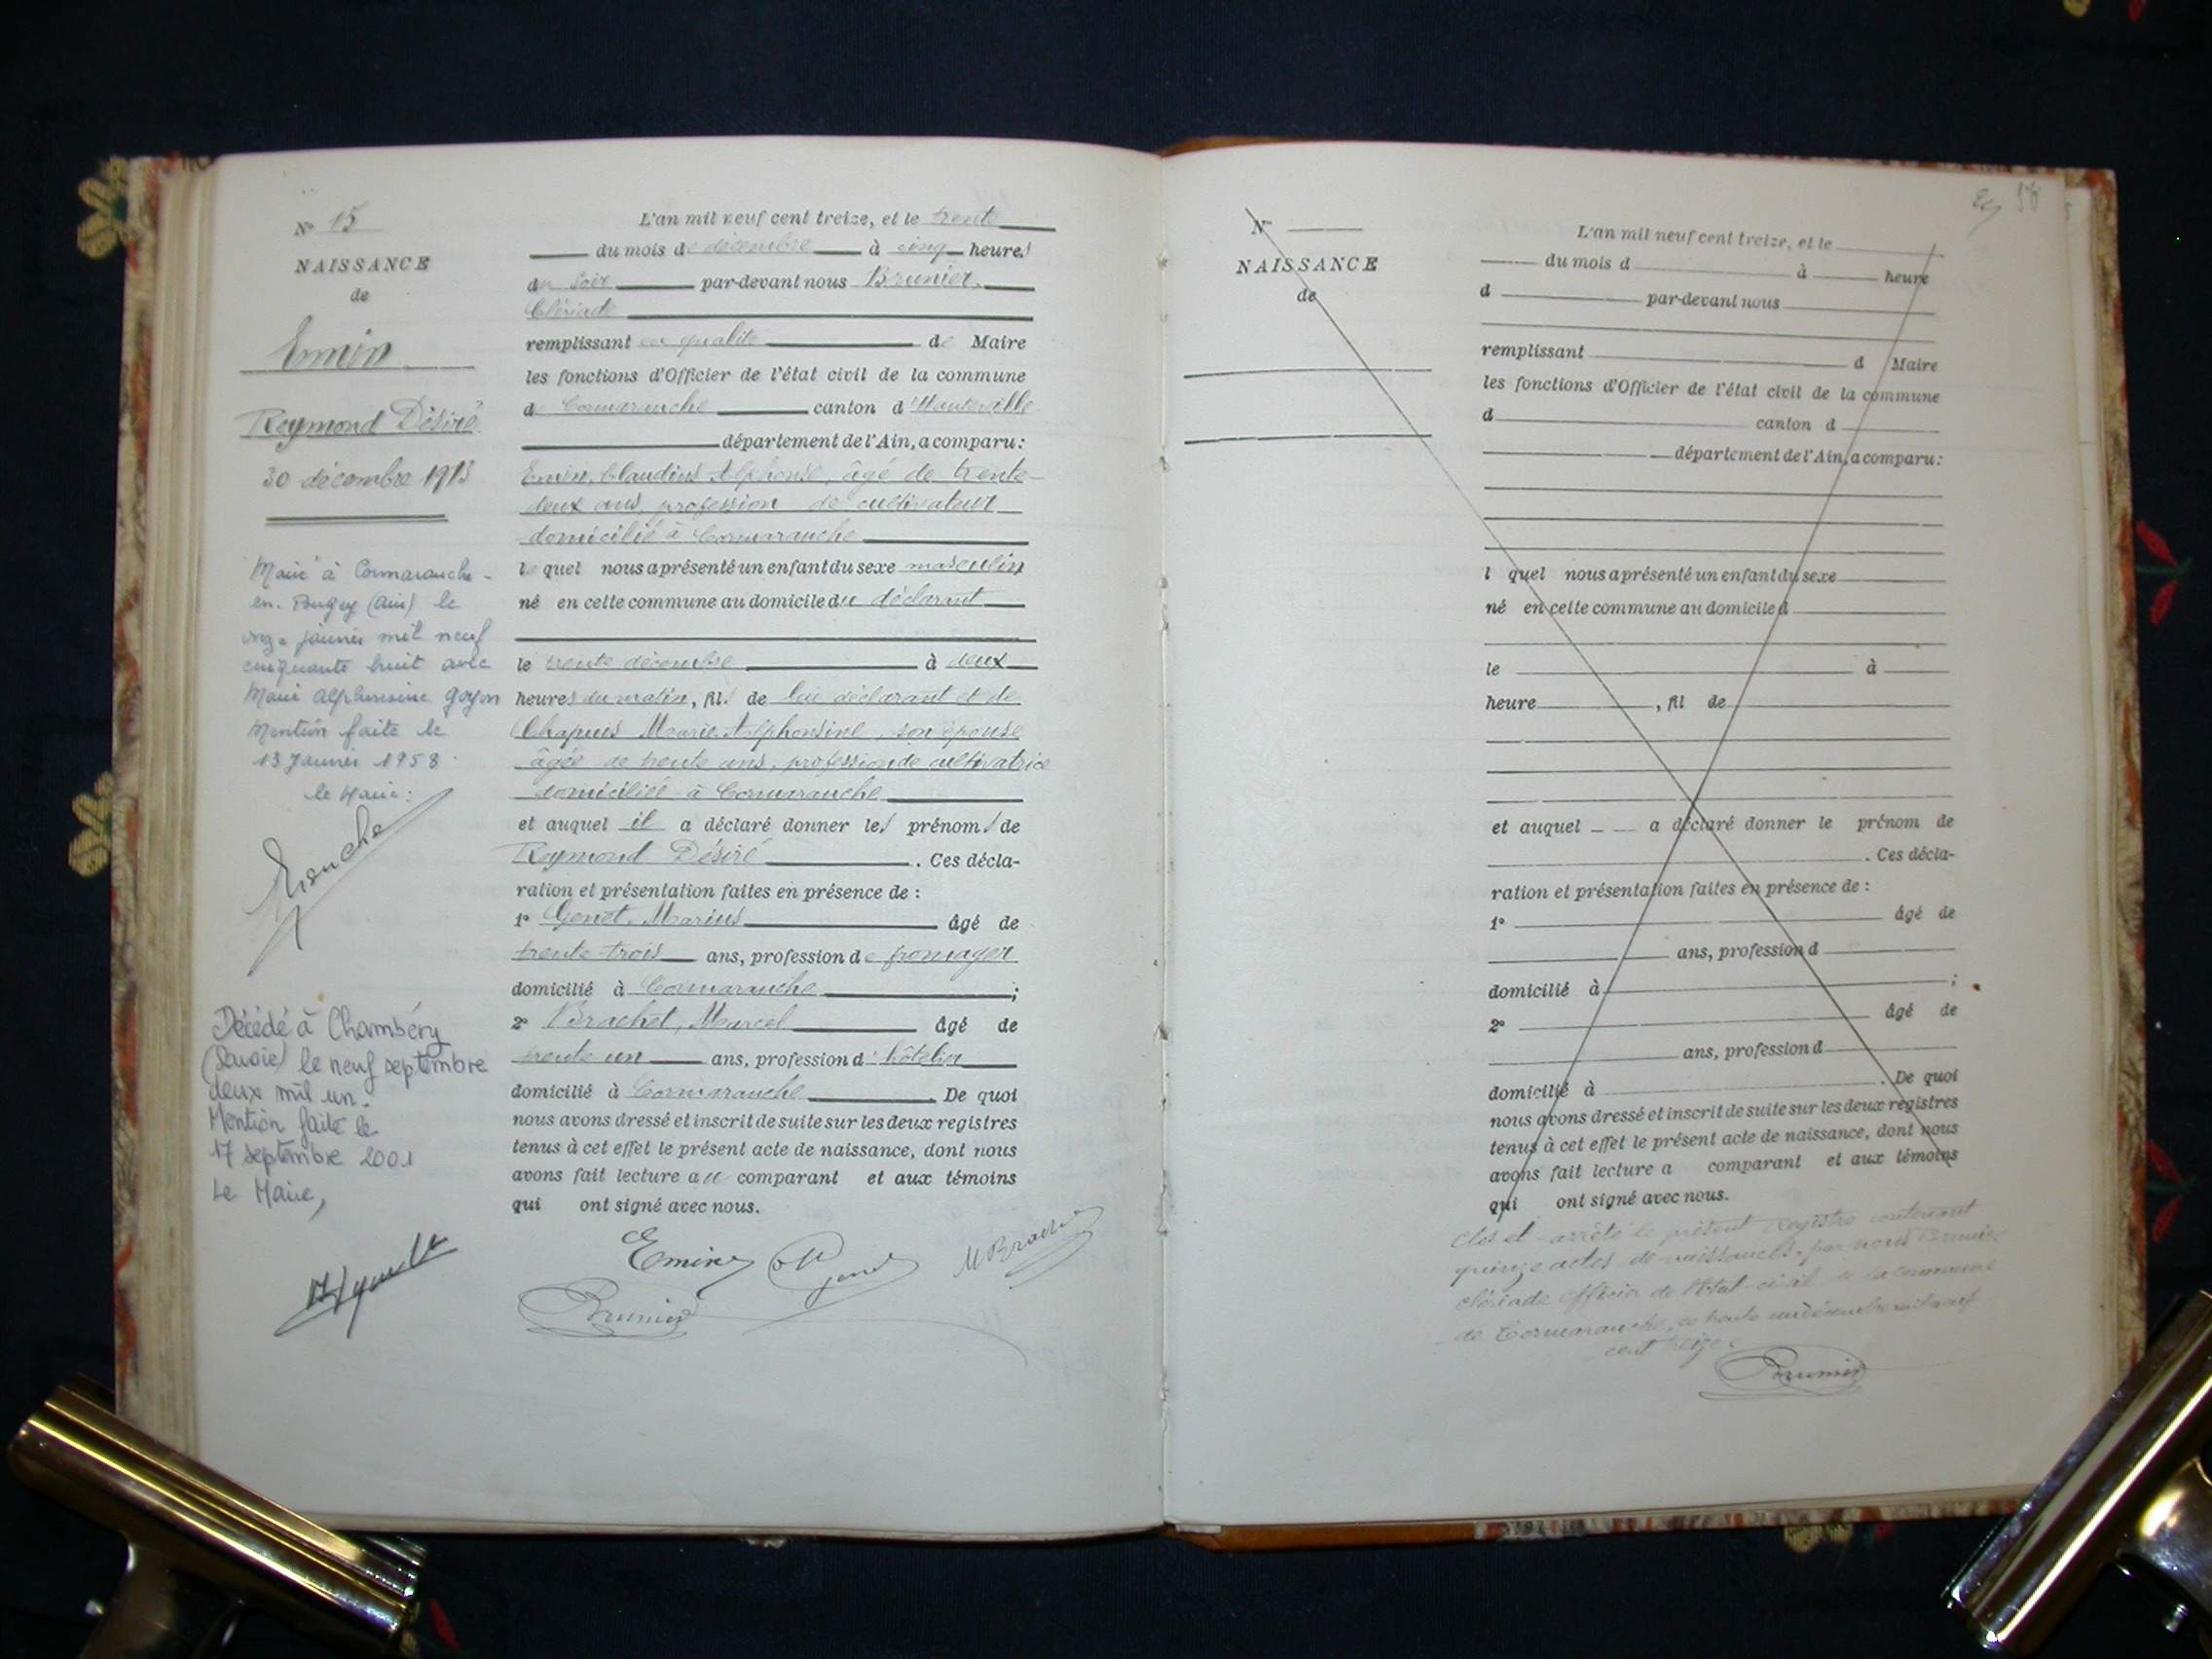 N° 15
NAISSANCE
de
Emin
Reymond Désiré
30 décembre 1913
Marié à Cormaranche-
en-Bugey (Ain) le
onze janvier mil neuf
cinquante huit avec
Marie Alphonsine Goyon
Mention faite le
13 Janvier 1958.
le Maire:
Décédé à Chambéry
(Savoie) le neuf septembre
deux mil un.
Mention faite le
17 septembre 2001
Le Maire,
L'an mil neuf cent treize, et le trente
du mois de décembre à cinq heures
du soir par-devant nous Brunier
Clériade
remplissant en qualité de Maire
les fonctions d'Officier de l'état civil de la commune
de Cormaranche canton d'Hauteville
département de l'Ain, a comparu:
Emin, Claudius Alphonse, âgé de trente-
deux ans, profession de cultivateur
domicilié à Cormaranche
lequel nous a présenté un enfant du sexe masculin
né en cette commune au domicile du déclarant
le trente décembre à deux
heures du matin, fils de lui déclarant et de
Chapuis Marie Alphonsine, son épouse
âgée de trente ans, profession de cultivatrice
domiciliée à Cormaranche
et auquel il a déclaré donner les prénoms de
Reymond Désiré. Ces décla-
ration et présentation faites en présence de :
1° Genet, Marius âgé de
trente-trois ans, profession de fromager
domicilié à Cormaranche ;
2° Brachet, Marcel âgé de
trente un ans, profession d'hôtelier
domicilié à Cormaranche. De quoi
nous avons dressé et inscrit de suite sur les deux registres
tenus à cet effet le présent acte de naissance, dont nous
avons fait lecture au comparant et aux témoins
qui ont signé avec nous.
Emin Genet M Brachet
Brunier
N°
NAISSANCE
de
L'an mil neuf cent treize, et le
du mois d à heure
d par-devant nous
remplissant d Maire
les fonctions d'Officier de l'état civil de la commune
d canton d
département de l'Ain, a comparu:
l quel nous a présenté un enfant du sexe
né en cette commune au domicile d
le à
heure , fil de
et auquel a déclaré donner le prénom de
. Ces décla-
ration et présentation faites en présence de :
1° âgé de
ans, profession d
domicilié à ;
2° âgé de
ans, profession d
domicilié à . De quoi
nous avons dressé et inscrit de suite sur les deux registres
tenus à cet effet le présent acte de naissance, dont nous
avons fait lecture a comparant et aux témoins
qui ont signé avec nous.
Clos et arrêté le présent Registre contenant
quinze actes de naissances, par nous Brunier
Clériade Officier de l'Etat-civil de la commune
de Cormaranche, ce trente un décembre mil neuf
cent treize.
Brunier